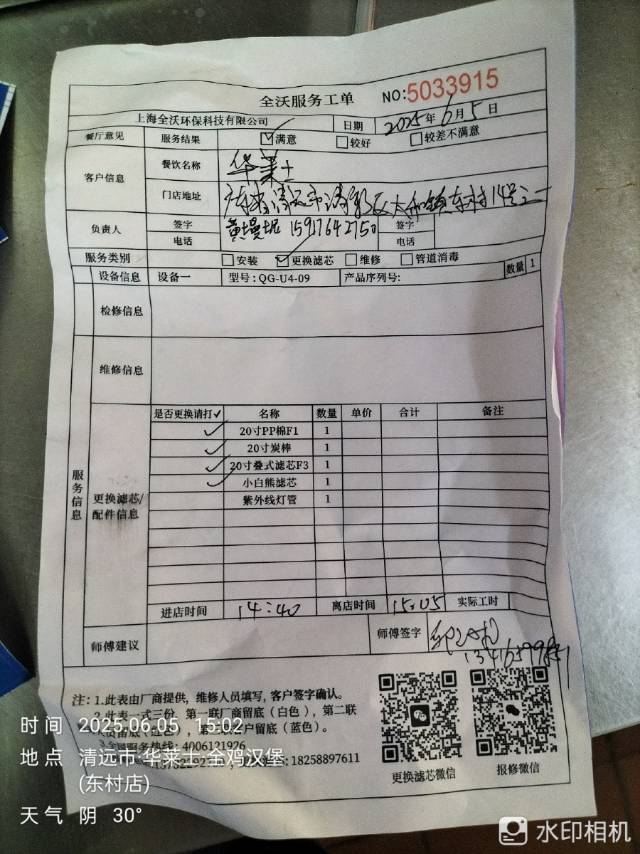 全沃服务工单 NO:5033915
上海全沃环保科技有限公司 日期 2025年6月5日
餐厅意见 服务结果 ☑满意 □较好 □较差不满意
客户信息 餐饮名称 华莱士
门店地址 清远市 东村
负责人 签字 签字
电话 15917642750 电话
服务类别 □安装 ☑更换滤芯 □维修 □管道消毒
设备信息 设备一 型号:QG-U4-09 产品序列号: 数量 1
检修信息
维修信息
服务信息
更换滤芯/配件信息
是否更换请打✓ 名称 数量 单价 合计 备注
✓ 20寸PP棉F1 1
✓ 20寸炭棒 1
✓ 20寸叠式滤芯F3 1
✓ 小白熊滤芯 1
紫外线灯管 1
进店时间 14:40 离店时间 15:05 实际工时
师傅建议 师傅签字
注:1.此表由厂商提供,维修人员填写,客户签字确认。
第一联厂商留底(白色),第二联
户留底(蓝色)。
服务热线:4006121926
18258897611
更换滤芯微信 报修微信
时间 2025.06.05 15:02
地点 清远市·华莱士·全鸡汉堡
(东村店)
天气 阴 30°
水印相机